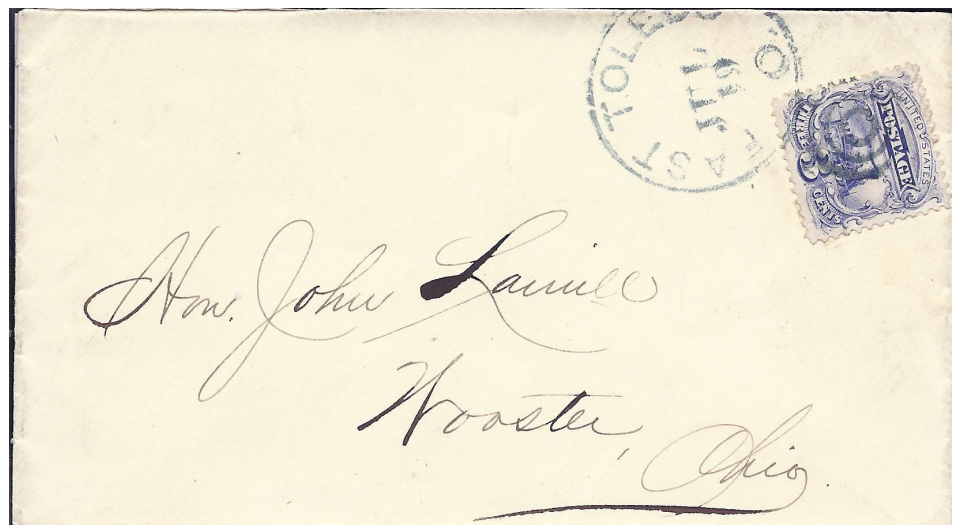 EAST TOLEDO O.
JUL
19
UNITED STATES
POSTAGE
3
Hon. John Larwill
Wooster,
Ohio